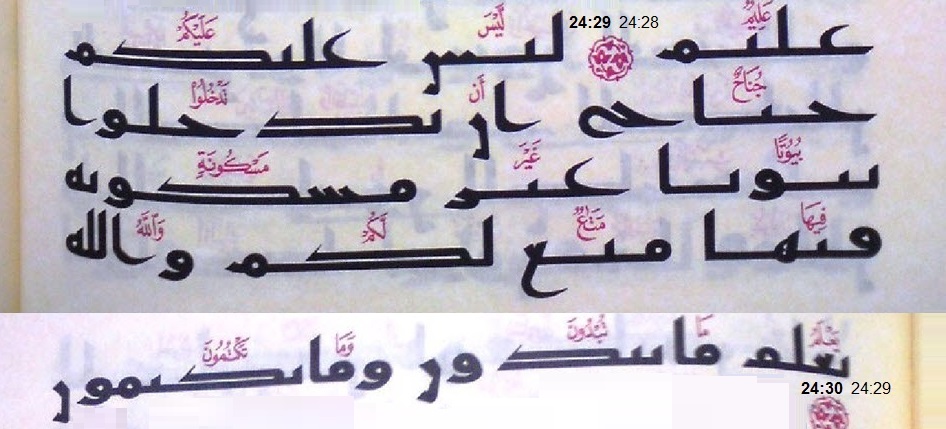 عَلِيمٌ 24:28 24:29 لَّيْسَ عَلَيْكُمْ
عليم ليس عليكم
جُنَاحٌ أَن تَدْخُلُوا۟
جناح ان تدخلوا
بُيُوتًا غَيْرَ مَسْكُونَةٍ
بيوتا غير مسكونه
فِيهَا مَتَٰعٌ لَّكُمْ وَٱللَّهُ
فيها متع لكم والله
يَعْلَمُ مَا تُبْدُونَ وَمَا تَكْتُمُونَ
يعلم ما تبدون وما تكتمون
24:30 24:29